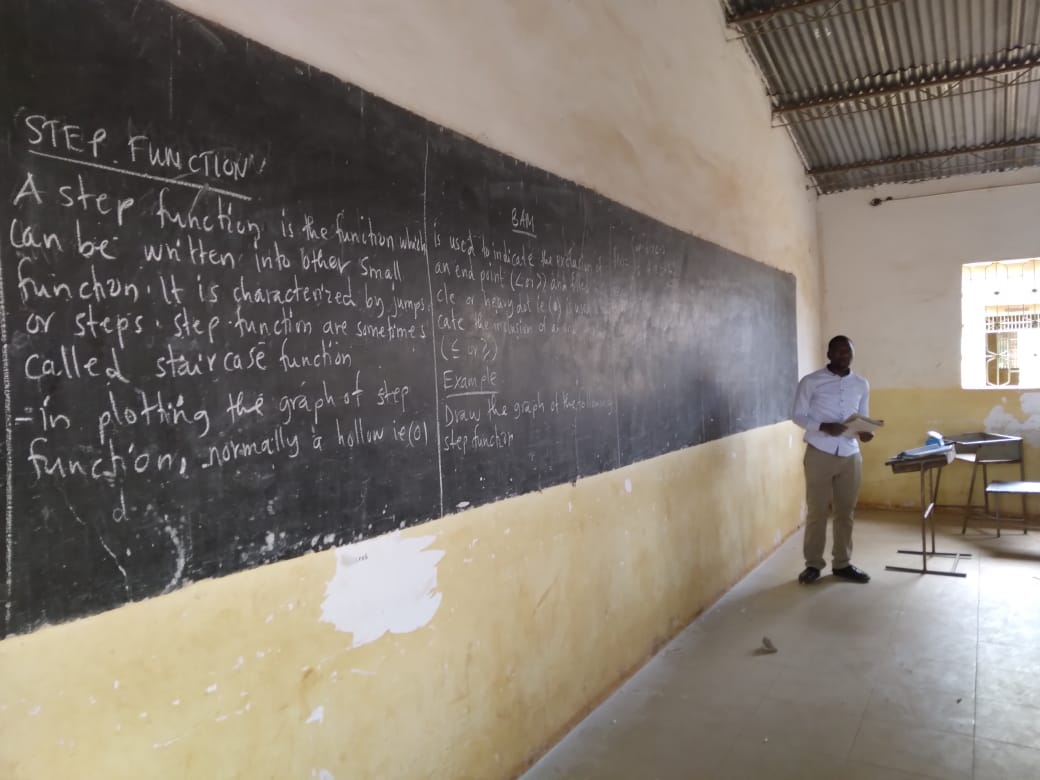 STEP FUNCTION
A step function is the function which
can be written into other small
function. It is characterized by jumps
or steps. step function are sometimes
called staircase function
- in plotting the graph of step
function, normally a hollow ie (o)
d
BAM
is used to indicate the exclusion of
an end point (< or >) and filled
cle or heavy dot ie (●) is used
cate the inclusion of an
(≤ or ≥)
Example
Draw the graph of the following
step function